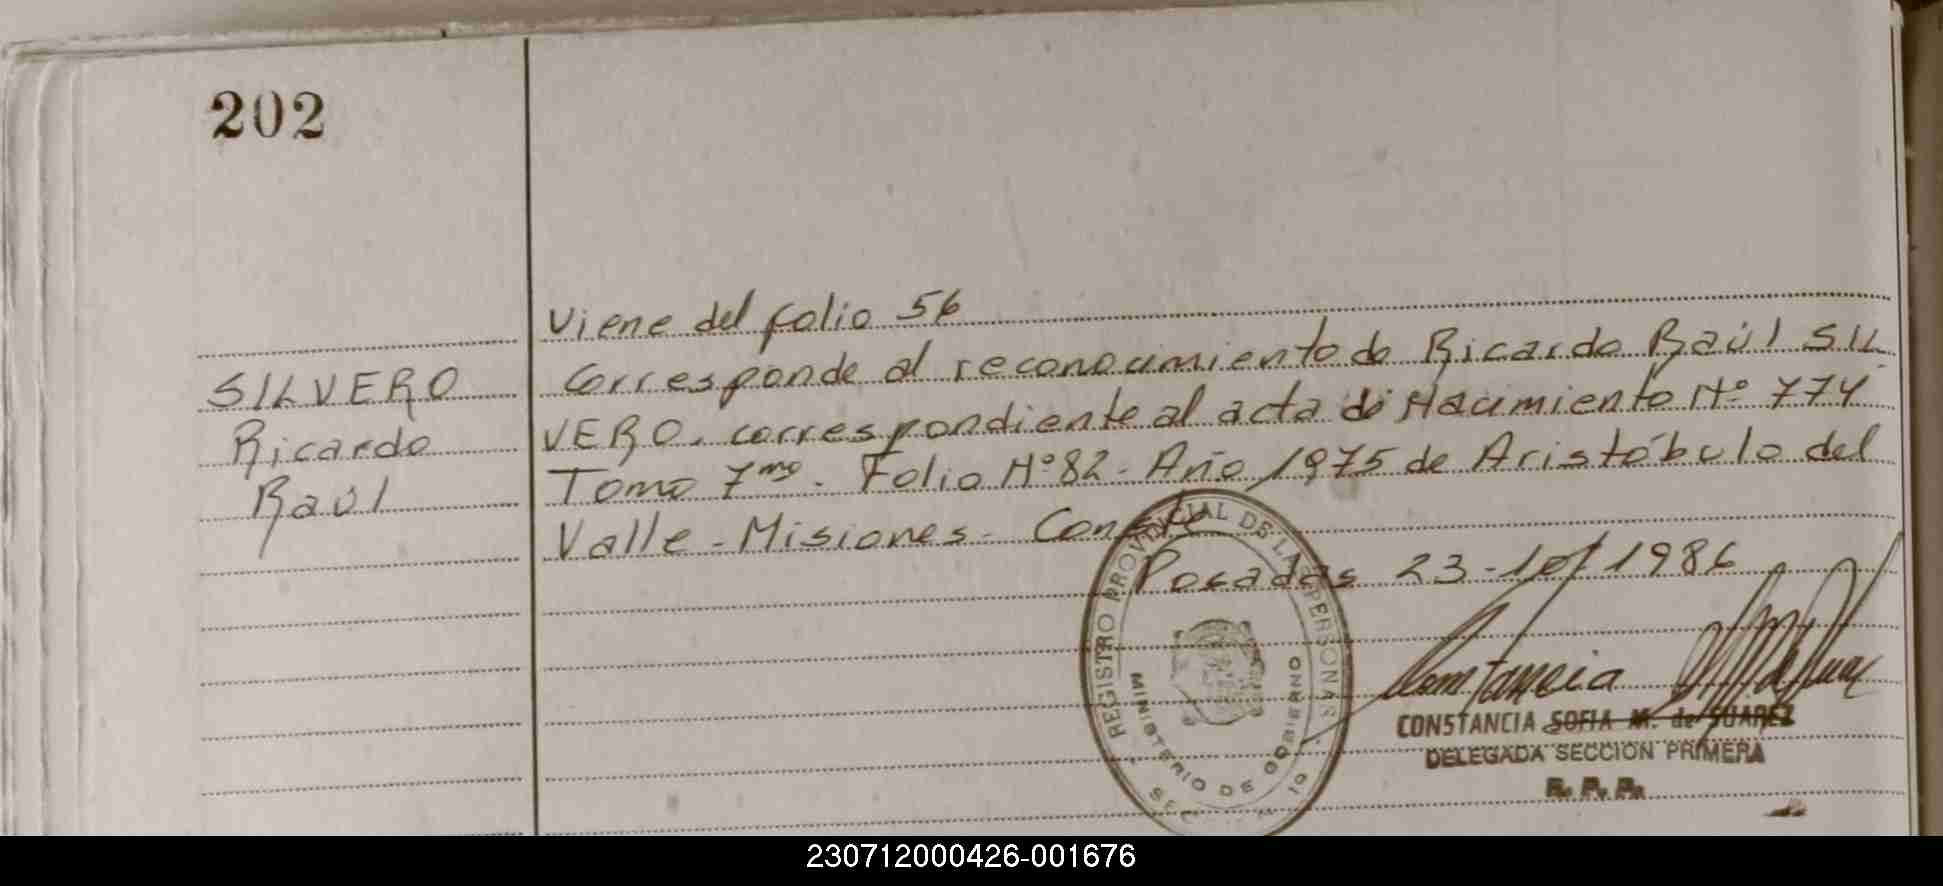 202
Viene del folio 56
SILVERO
Ricardo
Raúl
Corresponde al reconocimiento de Ricardo Raúl SIL
VERO. correspondiente al acta de Nacimiento Nº 774
Tomo 7mo. Folio Nº 82 - Año 1975 de Aristóbulo del
Valle - Misiones - Conste
Posadas 23-10-1986
REGISTRO PROVINCIAL DE LAS PERSONAS
MINISTERIO DE GOBIERNO
Constancia
CONSTANCIA SOFIA M. de SUAREZ
DELEGADA SECCION PRIMERA
R. P. P.
230712000426-001676